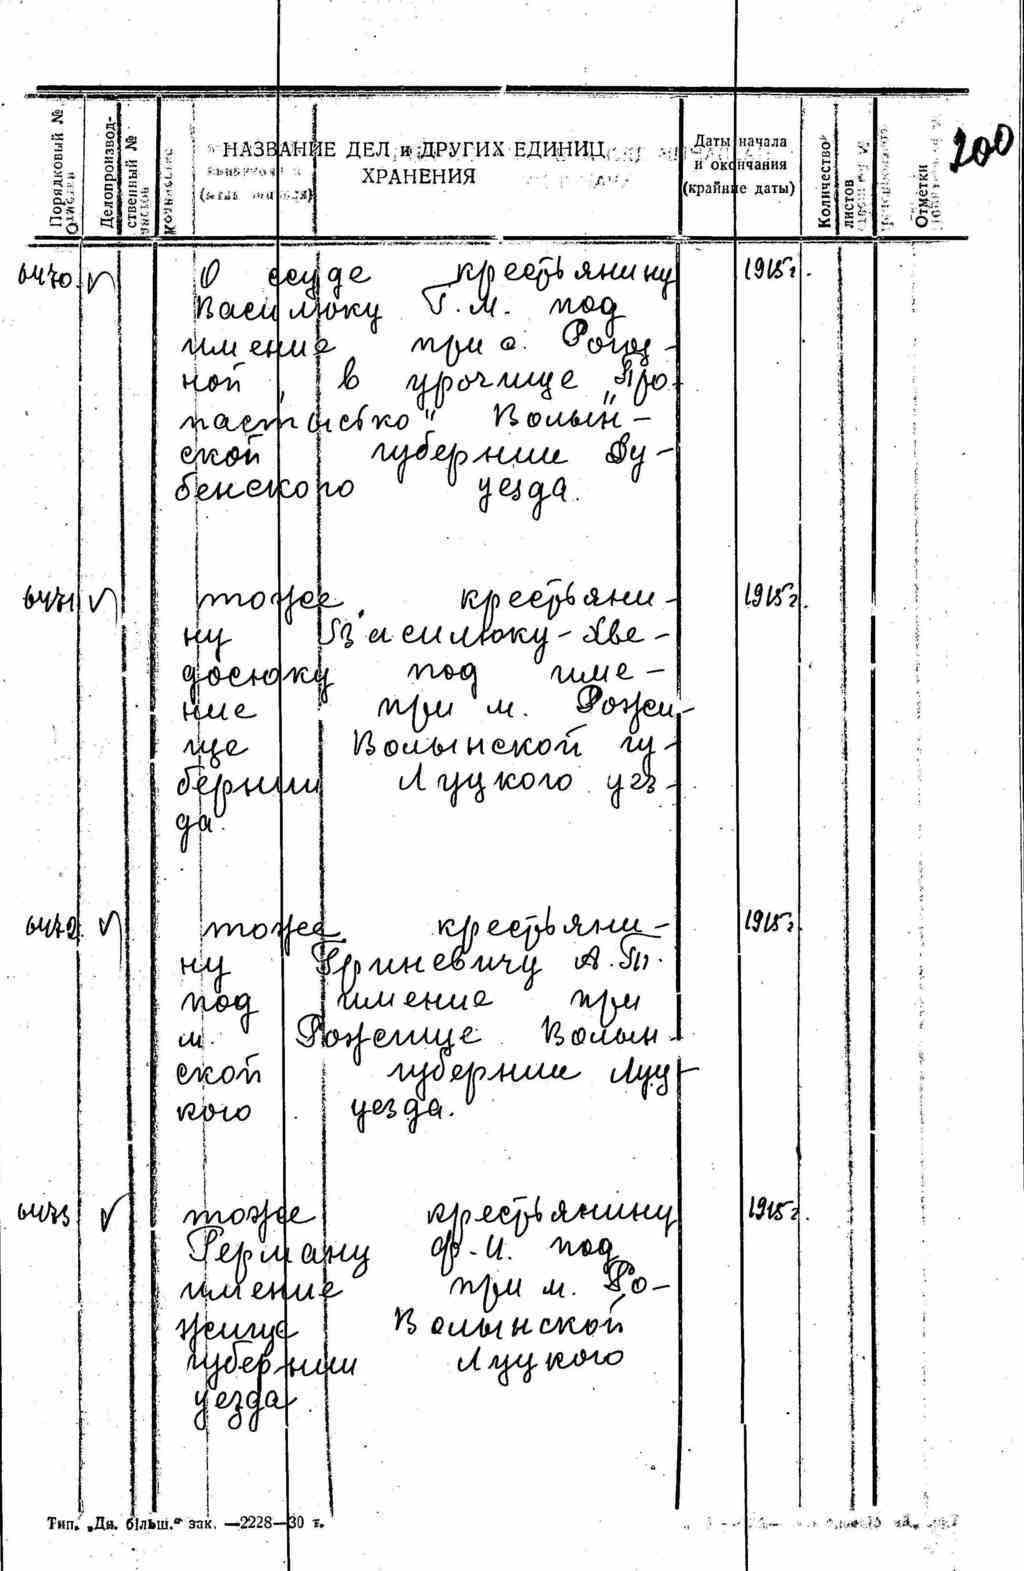 200
Порядковый №
Делопроизвод-
ственный №
НАЗВАНИЕ ДЕЛ и ДРУГИХ ЕДИНИЦ
ХРАНЕНИЯ
Даты начала
и окончания
(крайние даты)
Количество
листов
Отметки
6470 О ссуде крестьянину 1915г.
Василюку Г.М. под
имение при с. Рогоз-
ной, в урочище „Про
пастысько" Волын-
ской губернии Ду-
бенского уезда.
6471 тоже крестьяни- 1915г.
ну Василюку-Хве-
досюку под име-
ние при м. Рожи-
ще Волынской гу-
бернии Луцкого уез-
да.
6472 тоже крестьяни- 1915г.
ну Гриневичу А.П.
под имение при
м. Рожище Волын-
ской губернии Луц-
кого уезда.
6473 тоже крестьянину 1915г.
Герману Ф.И. под
имение при м. Ро-
жище Волынской
губернии Луцкого
уезда
Тип. „Дн. більш.“ зак. —2228—30 т.